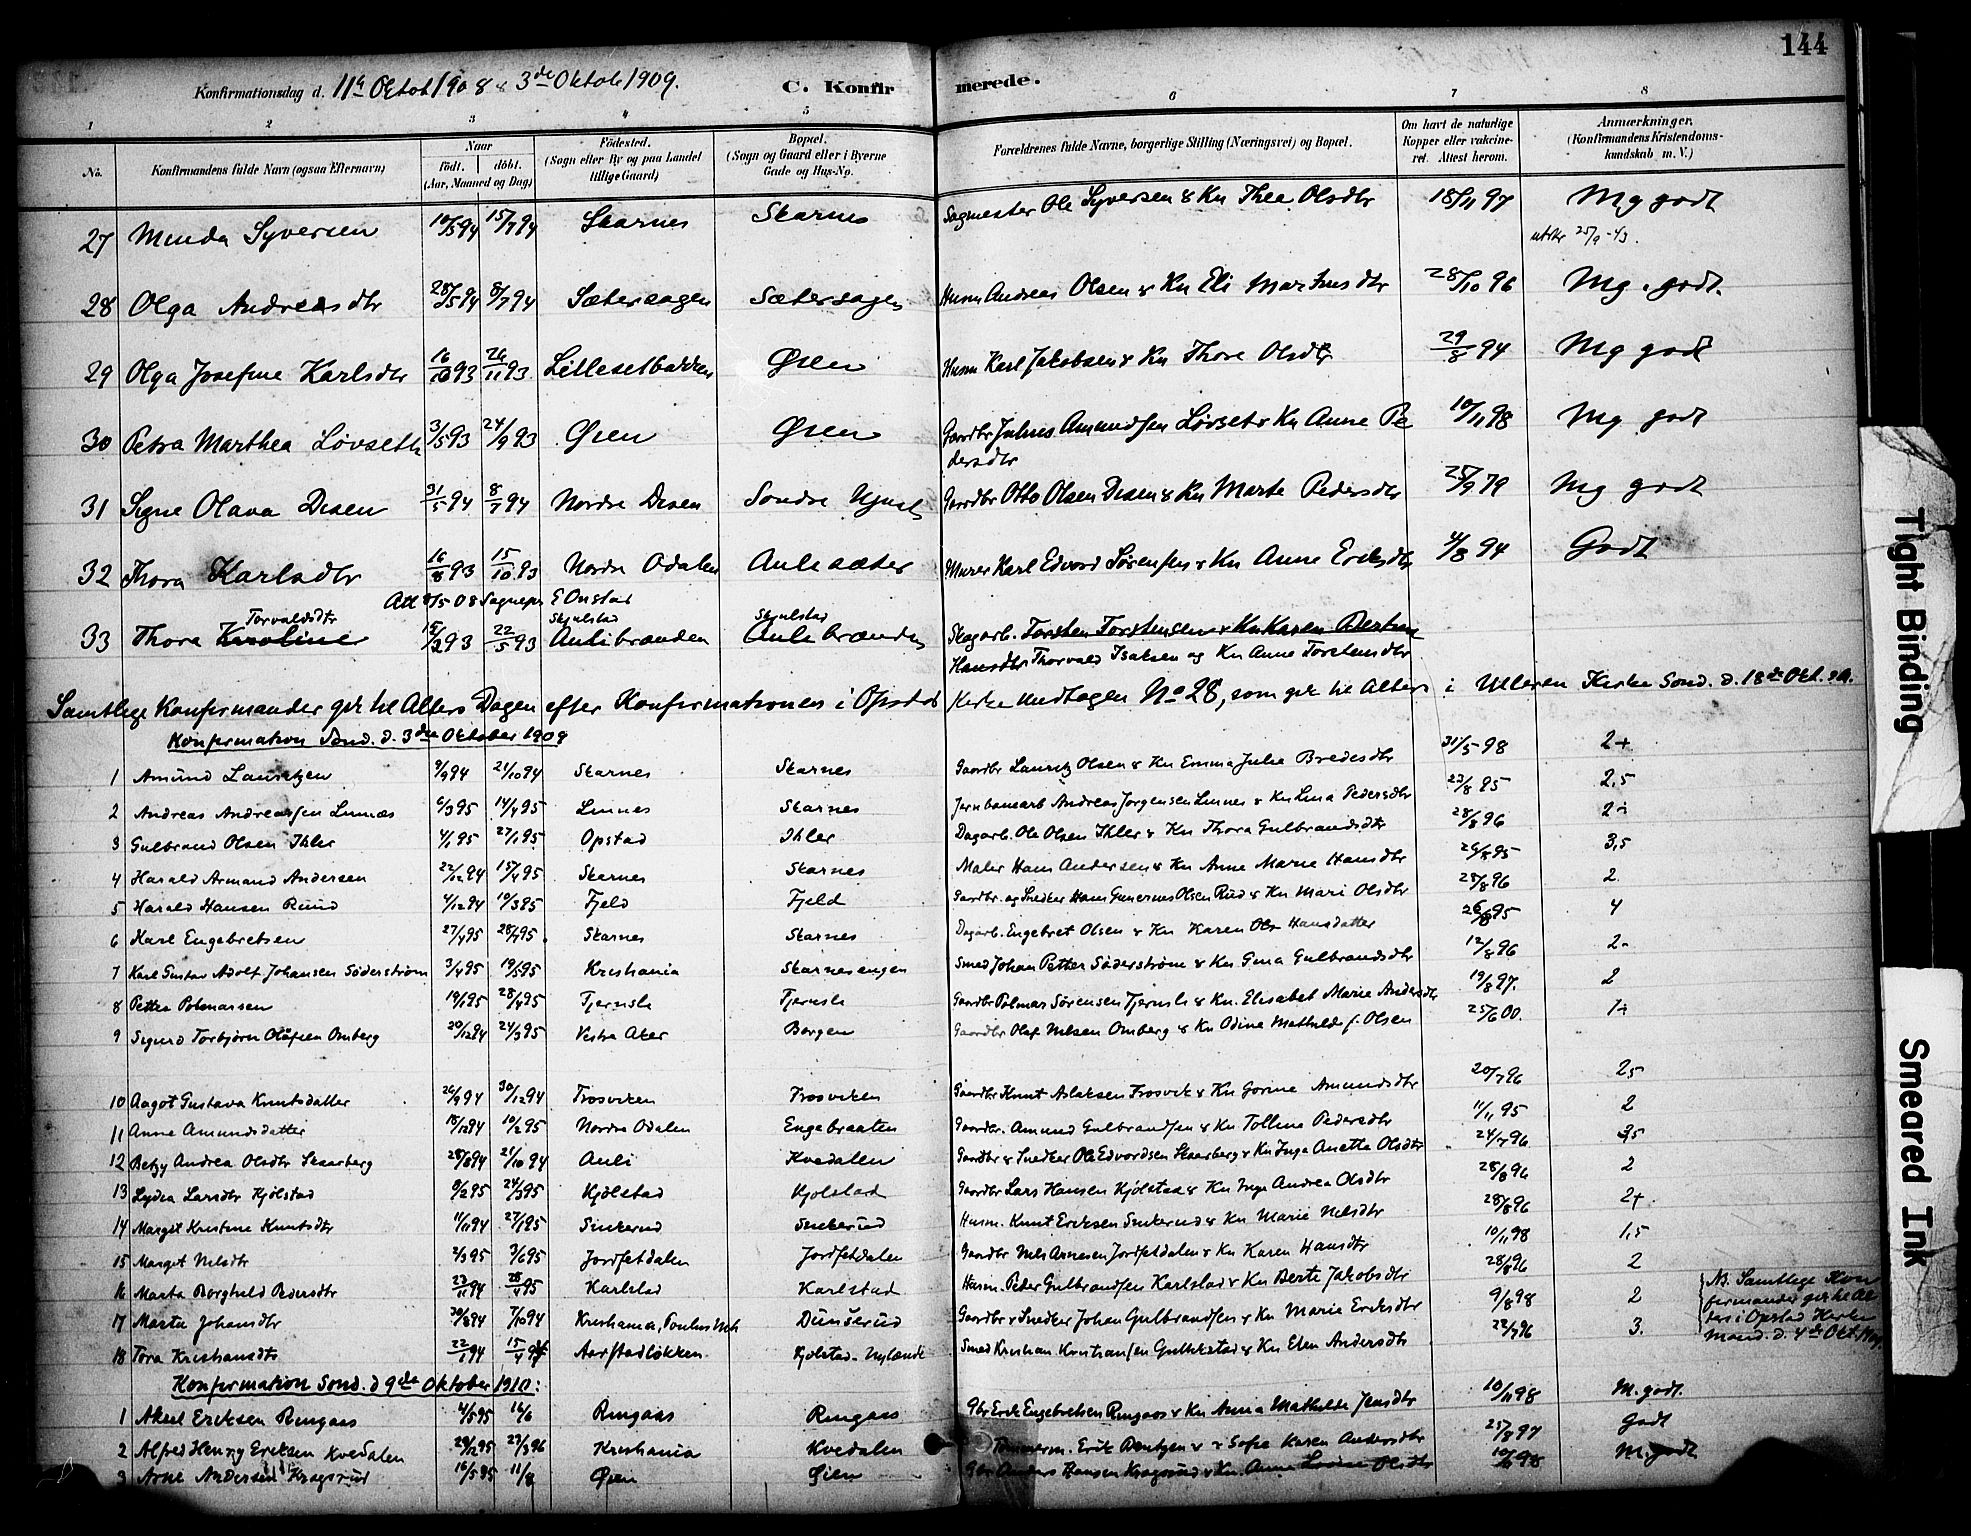 144
Konfirmationsdag d. 11te Oktob 1908 & 3de Oktob 1909.
C. Konfirmerede.
1 2 3 4 5 6 7 8
No. Konfirmandens fulde Navn (ogsaa Efternavn) Naar født. døbt. (Aar, Maaned og Dag) Fødested. (Sogn eller By og paa Landet tillige Gaard) Bopæl. (Sogn og Gaard eller i Byerne Gade og Hus-No. Forældrenes fulde Navne, borgerlige Stilling (Næringsvei) og Bopæl. Om havt de naturlige Kopper eller vakcineret. Attest herom. Anmærkninger. (Konfirmandens Kristendomskundskab m. V.)
27 Minda Syversen 10/5 94 15/7 94 Skarnes Skarnes Sagmester Ole Syversen & Kn Thea Olsdtr 18/11 97 Mg godt
25/9-43.
28 Olga Andreasdtr 28/5 94 8/7 94 Sætersagen Sætersagen Husm Andreas Olsen & Kn Eli Martinsdtr 28/10 96 Mg. godt.
29 Olga Josefine Karlsdtr 16/10 93 26/11 93 Lillesetbakken Øien Husm Karl Jakobsen & Kn Thore Olsdtr 29/8 94 Mg godt
30 Petra Marthea Løvseth 3/5 93 24/9 93 Øien Øien Gaardbr Julius Amundsen Løvset & Kn Anne Pe
dersdtr 10/11 98 Mg godt
31 Signe Olava Disen 31/5 94 8/7 94 Nordre Disen Søndre Gaardbr Otto Olsen Disen & Kn Marte Pedersdtr 25/9 79 Mg godt
32 Thora Karlsdtr 16/8 93 15/10 93 Nordre Odalen Aulesæter Murer Karl Edvard Sørensen & Kn Anne Eriksdtr 4/8 94 Godt
Att 8/5 08 Sognepr E Onstad
Torvaldsdtr Skjulstad Skjulstad
33 Thora Karoline 15/2 93 22/5 93 Aulibrænden Aulebrænden Skogarb. Torsten Torstensen & Kn Karen Bertine
Hansdtr Thorvald Isaksen og Kn Anne Torstensdtr
Samtlige Konfirmander gik til Alters Dagen efter Konfirmationen i Opstad Kirke undtagen No 28, som gik til Alters i Ulleren Kirke Sønd. d. 18de Okt. s.A.
Konfirmation Sønd. d. 3die Oktober 1909
1 Amund Lauritzen 9/9 94 21/10 94 Skarnes Skarnes Gaardbr Lauritz Olsen & Kn Emma Julie Bredesdtr 31/5-98 2+
2 Andreas Andreassen Linnæs 6/3 95 14/4 95 Linnes Skarnes Jernbanearb Andreas Jørgensen Linnes & Kn Lina Pedersdtr 23/8 95 2,5
3 Gulbrand Olsen Ihler 4/1 95 27/1 95 Opstad Ihler Dagarb. Ole Olsen Ihler & Kn Thora Gulbrandsdtr 28/8 96 2÷
4 Harald Armand Andersen 22/12 94 15/4 95 Skarnes Skarnes Maler Hans Andersen & Kn Anne Marie Hansdtr 26/8 95 3,5
5 Harald Hansen Ruud 4/12 94 10/3 95 Fjeld Fjeld Gaardbr. og Snedker Hans Gunerius Olsen Rud & Kn Mari Olsdtr 28/8 96 2.
6 Karl Engebretsen 27/4 95 28/7 95. Skarnes Skarnes Dagarb. Engebret Olsen & Kn Karen Ols Hansdatter 26/8 95 4
7 Karl Gustav Adolf Johansen Söderström 3/4 95 19/5 95 Kristiania Skarnesengen Smed Johan Petter Söderström & Kn Gina Gulbrandsdtr 12/8 96 2-
8 Petter Polmarsen 19/1 95 28/4 95 Tjernsli Tjernsli Gaardbr Polmar Sørensen Tjernsli & Kn. Elisabet Marie Andersdtr 19/8 97. 2
9 Sigurd Torbjörn Olafsen Omberg 20/12 94 24/3 95 Vestre Aker Borgen Gaardbr Olaf Nilsen Omberg & Kn Odine Mathilde f. Olsen 25/6 00. 1÷
10 Aagot Gustava Knutsdatter 26/9 94 30/12 94 Frosviken Frosviken Gaardbr Knut Aslaksen Frosvik & Kn Gorine Amundsdtr 20/7 96 2,5
11 Anne Amundsdatter 18/12 94 10/2 95 Nordre Odalen Engebraaten Gaardbr. Amund Gulbrandsen & Kn Tolline Pedersdtr 11/11 95 2
12 Betzy Andrea Olsdtr Skaarberg 28/8 94 21/10 94 Auli Kvedalen Gaardbr & Snedker Ole Edvardsen Skaarberg & Kn Inga Anette Olsdtr 24/7 96 3,5
13 Lydia Larsdtr Kjölstad 9/2 95 24/3 95 Kjölstad Kjolstad Gaardbr Lars Hansen Kjölstad & Kn Inga Andrea Olsdtr 28/8 96 2
14 Margit Kristine Knutsdtr 11/11 94 27/1 95 Sinkerud Sinkerud Husm. Knut Eriksen Sinkerud & Kn Marie Nilsdtr 28/8 96 2+
15 Margit Nilsdtr 2/3 95 3/6 95 Jordfetdalen Jordfetdalen Gaardbr Nils Arnesen Jordfetdalen & Kn Karen Hansdtr 10/11 98 1,5
16 Marta Borghild Pedersdtr 23/11 94 28/4 95 Karlstad Karlstad Husm. Peder Gulbrandsen Karlstad & Kn Berte Jakobsdtr 28/8 96 2
17 Marta Johansdtr 30/8 94 7/10 94 Kristiania, Paulus Mh Dunserud Gaardbr & Snedker Johan Gulbrandsen & Kn Marie Eriksdtr 9/8 98 2
18 Tora Kristiansdtr 22/1 94 15/4 94 Aarstadlökken Kjolstad-Nylænde Smed Kristian Kristiansen Gullikstad & Kn Elen Andersdtr 22/7 96 3.
NB. Samtlige Kon
firmander gik til Al
ters i Opstad Kirke
Mand. d. 4de Okt.
Konfirmation Sønd. d 9de Oktober 1910:
1 Aksel Eriksen Ringaas 4/5 95 16/6 Ringaas Ringaas Gbr Erik Engebretsen Ringaas & Kn Anna Mathilde Jensdtr 10/11 98 M. godt.
2 Alfred Henry Eriksen Kvedalen 29/12 95 22/3 96 Kristiania Kvedalen Tømmerm. Erik Bentzen & Sofie Karen Andersdtr 25/8 97 Godt
3 Arne Andersen Kragsrud 16/5 95 11/8 Øien Øien Gbr Anders Hansen Kragsrud & Kn. Anne Lovise Olsdtr 10/11 98 M. godt
Tight Binding
Smeared Ink